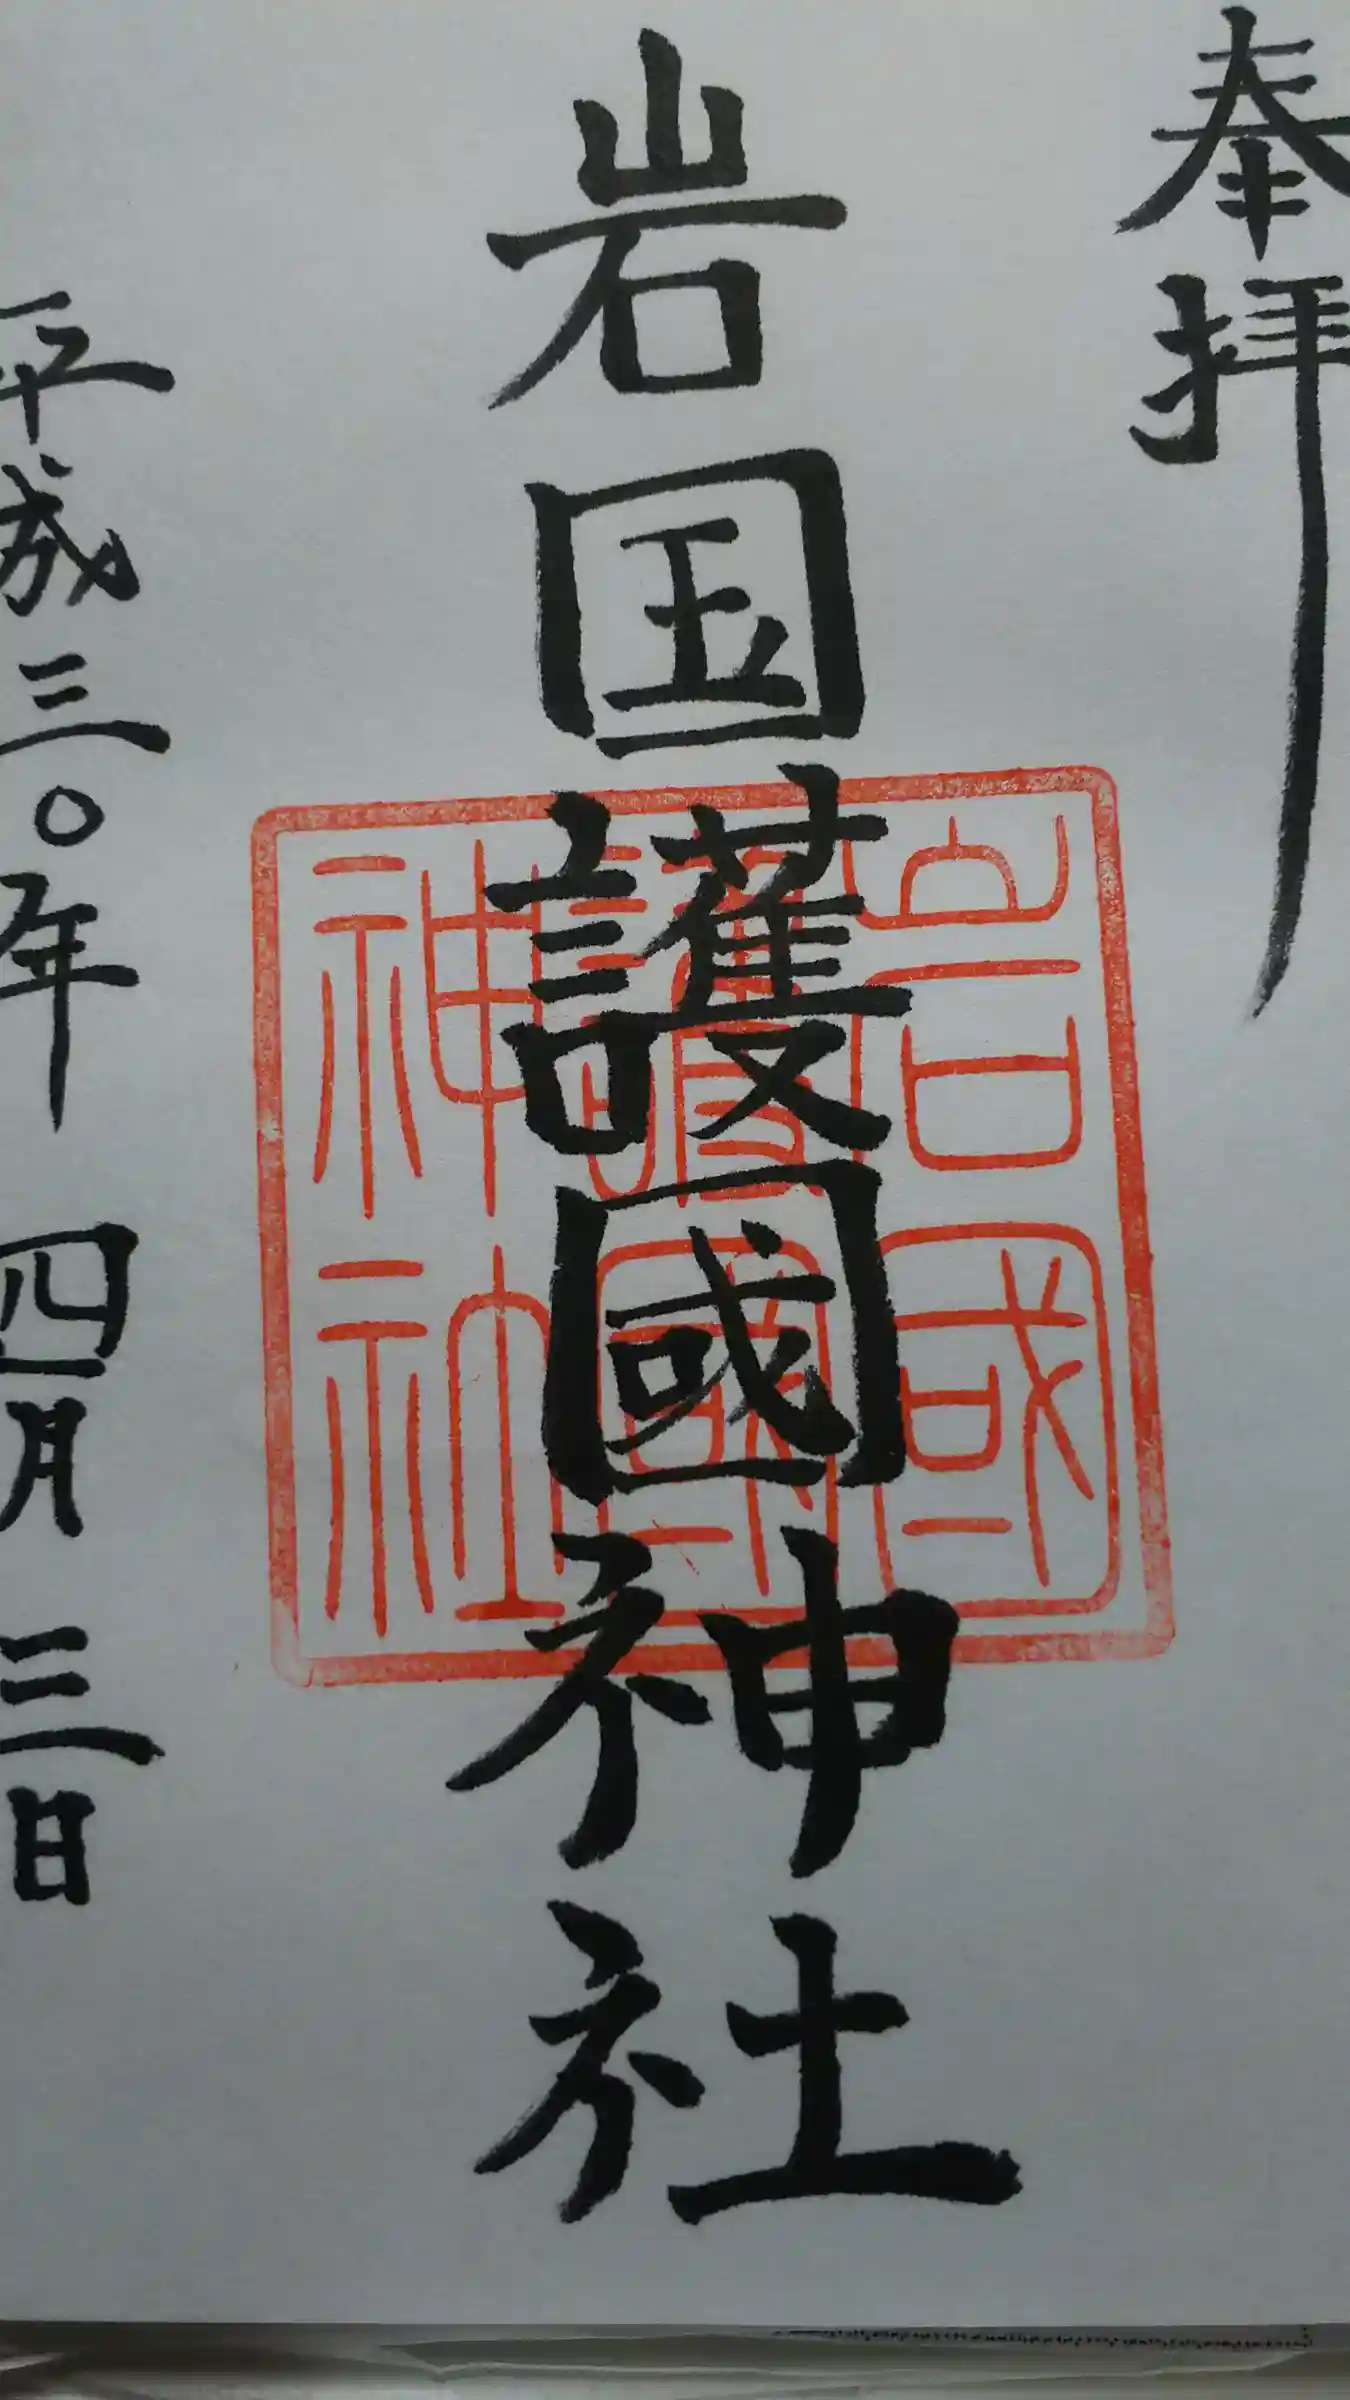 奉拝
岩国護國神社
岩國
護國
神社
平成三〇年 四月三日